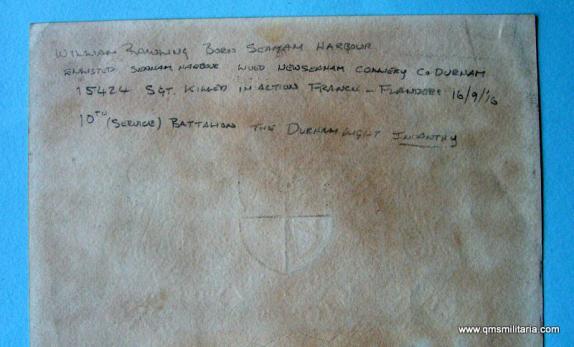 WILLIAM RAWLING BORN SEAHAM HARBOUR
ENLISTED SEAHAM HARBOUR LIVED NEWSEAHAM COLLIERY CO DURHAM
15424 SGT. KILLED IN ACTION FRANCE - FLANDERS 16/9/16
10TH (SERVICE) BATTALION THE DURHAM LIGHT INFANTRY
www.qmsmilitaria.com